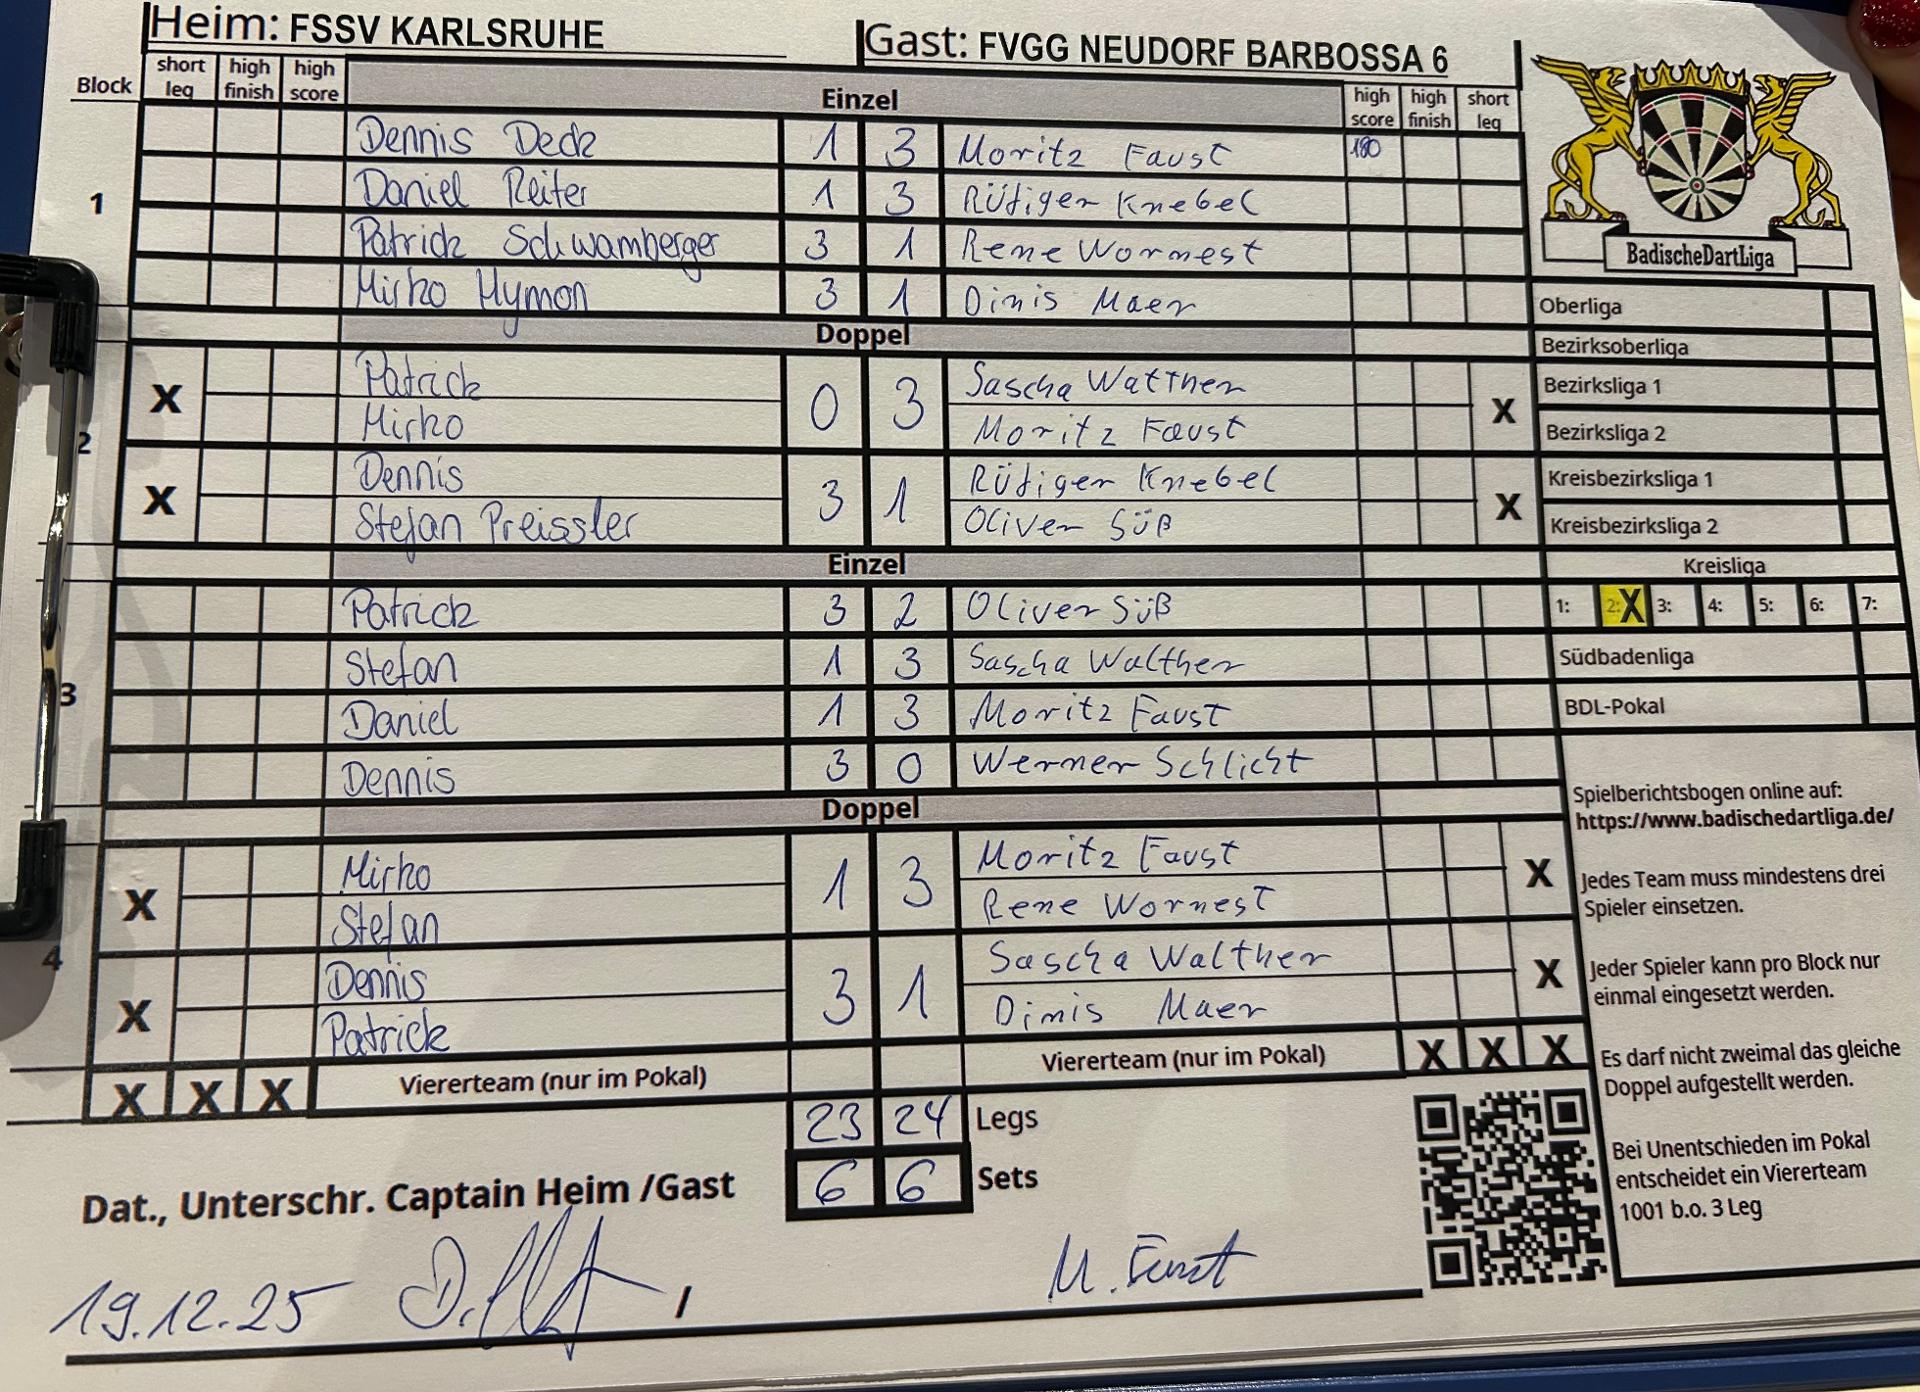 Heim: FSSV KARLSRUHE Gast: FVGG NEUDORF BARBOSSA 6
Block short leg high finish high score Einzel high score high finish short leg
Dennis Deck 1 3 Moritz Faust 180
1 Daniel Reiter 1 3 Rüdiger Knebel
Patrick Schwamberger 3 1 Rene Wornest
Mirko Hymon 3 1 Dinis Maer
Doppel
X Patrick 0 3 Sascha Walther X
Mirko Moritz Faust
2
X Dennis 3 1 Rüdiger Knebel X
Stefan Preissler Oliver Süß
Einzel
Patrick 3 2 Oliver Süß
Stefan 1 3 Sascha Walther
3
Daniel 1 3 Moritz Faust
Dennis 3 0 Werner Schlicht
Doppel
X Mirko 1 3 Moritz Faust X
Stefan Rene Wornest
4
X Dennis 3 1 Sascha Walther X
Patrick Dinis Maer
X X X Viererteam (nur im Pokal) Viererteam (nur im Pokal) X X X
23 24 Legs
6 6 Sets
Dat., Unterschr. Captain Heim /Gast
19.12.25 / M. Faust
BadischeDartLiga
Oberliga
Bezirksoberliga
Bezirksliga 1
Bezirksliga 2
Kreisbezirksliga 1
Kreisbezirksliga 2
Kreisliga
1: 2: X 3: 4: 5: 6: 7:
Südbadenliga
BDL-Pokal
Spielberichtsbogen online auf:
https://www.badischedartliga.de/
Jedes Team muss mindestens drei
Spieler einsetzen.
Jeder Spieler kann pro Block nur
einmal eingesetzt werden.
Es darf nicht zweimal das gleiche
Doppel aufgestellt werden.
Bei Unentschieden im Pokal
entscheidet ein Viererteam
1001 b.o. 3 Leg